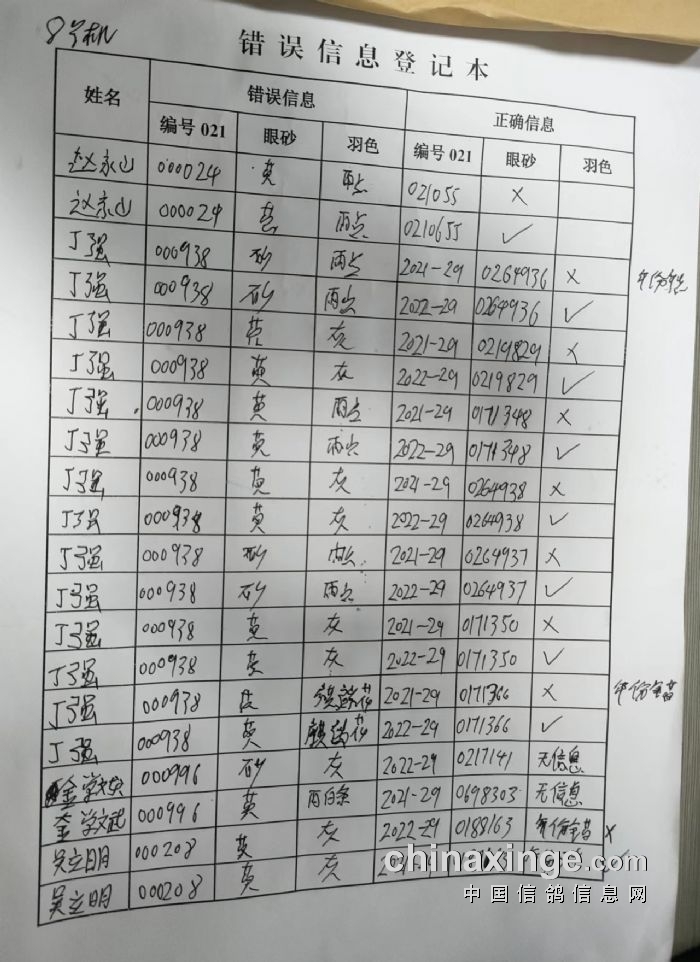 8号机
错误信息登记本
姓名 错误信息 正确信息
编号 021 眼砂 羽色 编号 021 眼砂 羽色
赵永山 000024 黄 雨点 021055 ×
赵永山 000024 黄 雨点 0210655 ✓
丁强 000938 砂 雨点 2021-29 0264936 ×
丁强 000938 砂 雨点 2022-29 0264936 ✓
丁强 000938 黄 灰 2021-29 0219829 ×
丁强 000938 黄 灰 2022-29 0219829 ✓
丁强 000938 黄 雨点 2021-29 0171348 ×
丁强 000938 黄 雨点 2022-29 0171348 ✓
丁强 000938 黄 灰 2021-29 0264938 ×
丁强 000938 黄 灰 2022-29 0264938 ✓
丁强 000938 砂 雨点 2021-29 0264937 ×
丁强 000938 砂 雨点 2022-29 0264937 ✓
丁强 000938 黄 灰 2021-29 0171350 ×
丁强 000938 黄 灰 2022-29 0171350 ✓
丁强 000938 2021-29 0171366 × 年份全昔
丁强 000938 黄 2022-29 0171366 ✓
000996 砂 灰 2022-29 0217141 无信息
000996 黄 雨白条 2021-29 0698303 无信息
吴立明 000208 黄 灰 2022-29 0188163 年份全昔 ×
吴立明 000208 黄 灰
chinaxinge.com
中国信鸽信息网